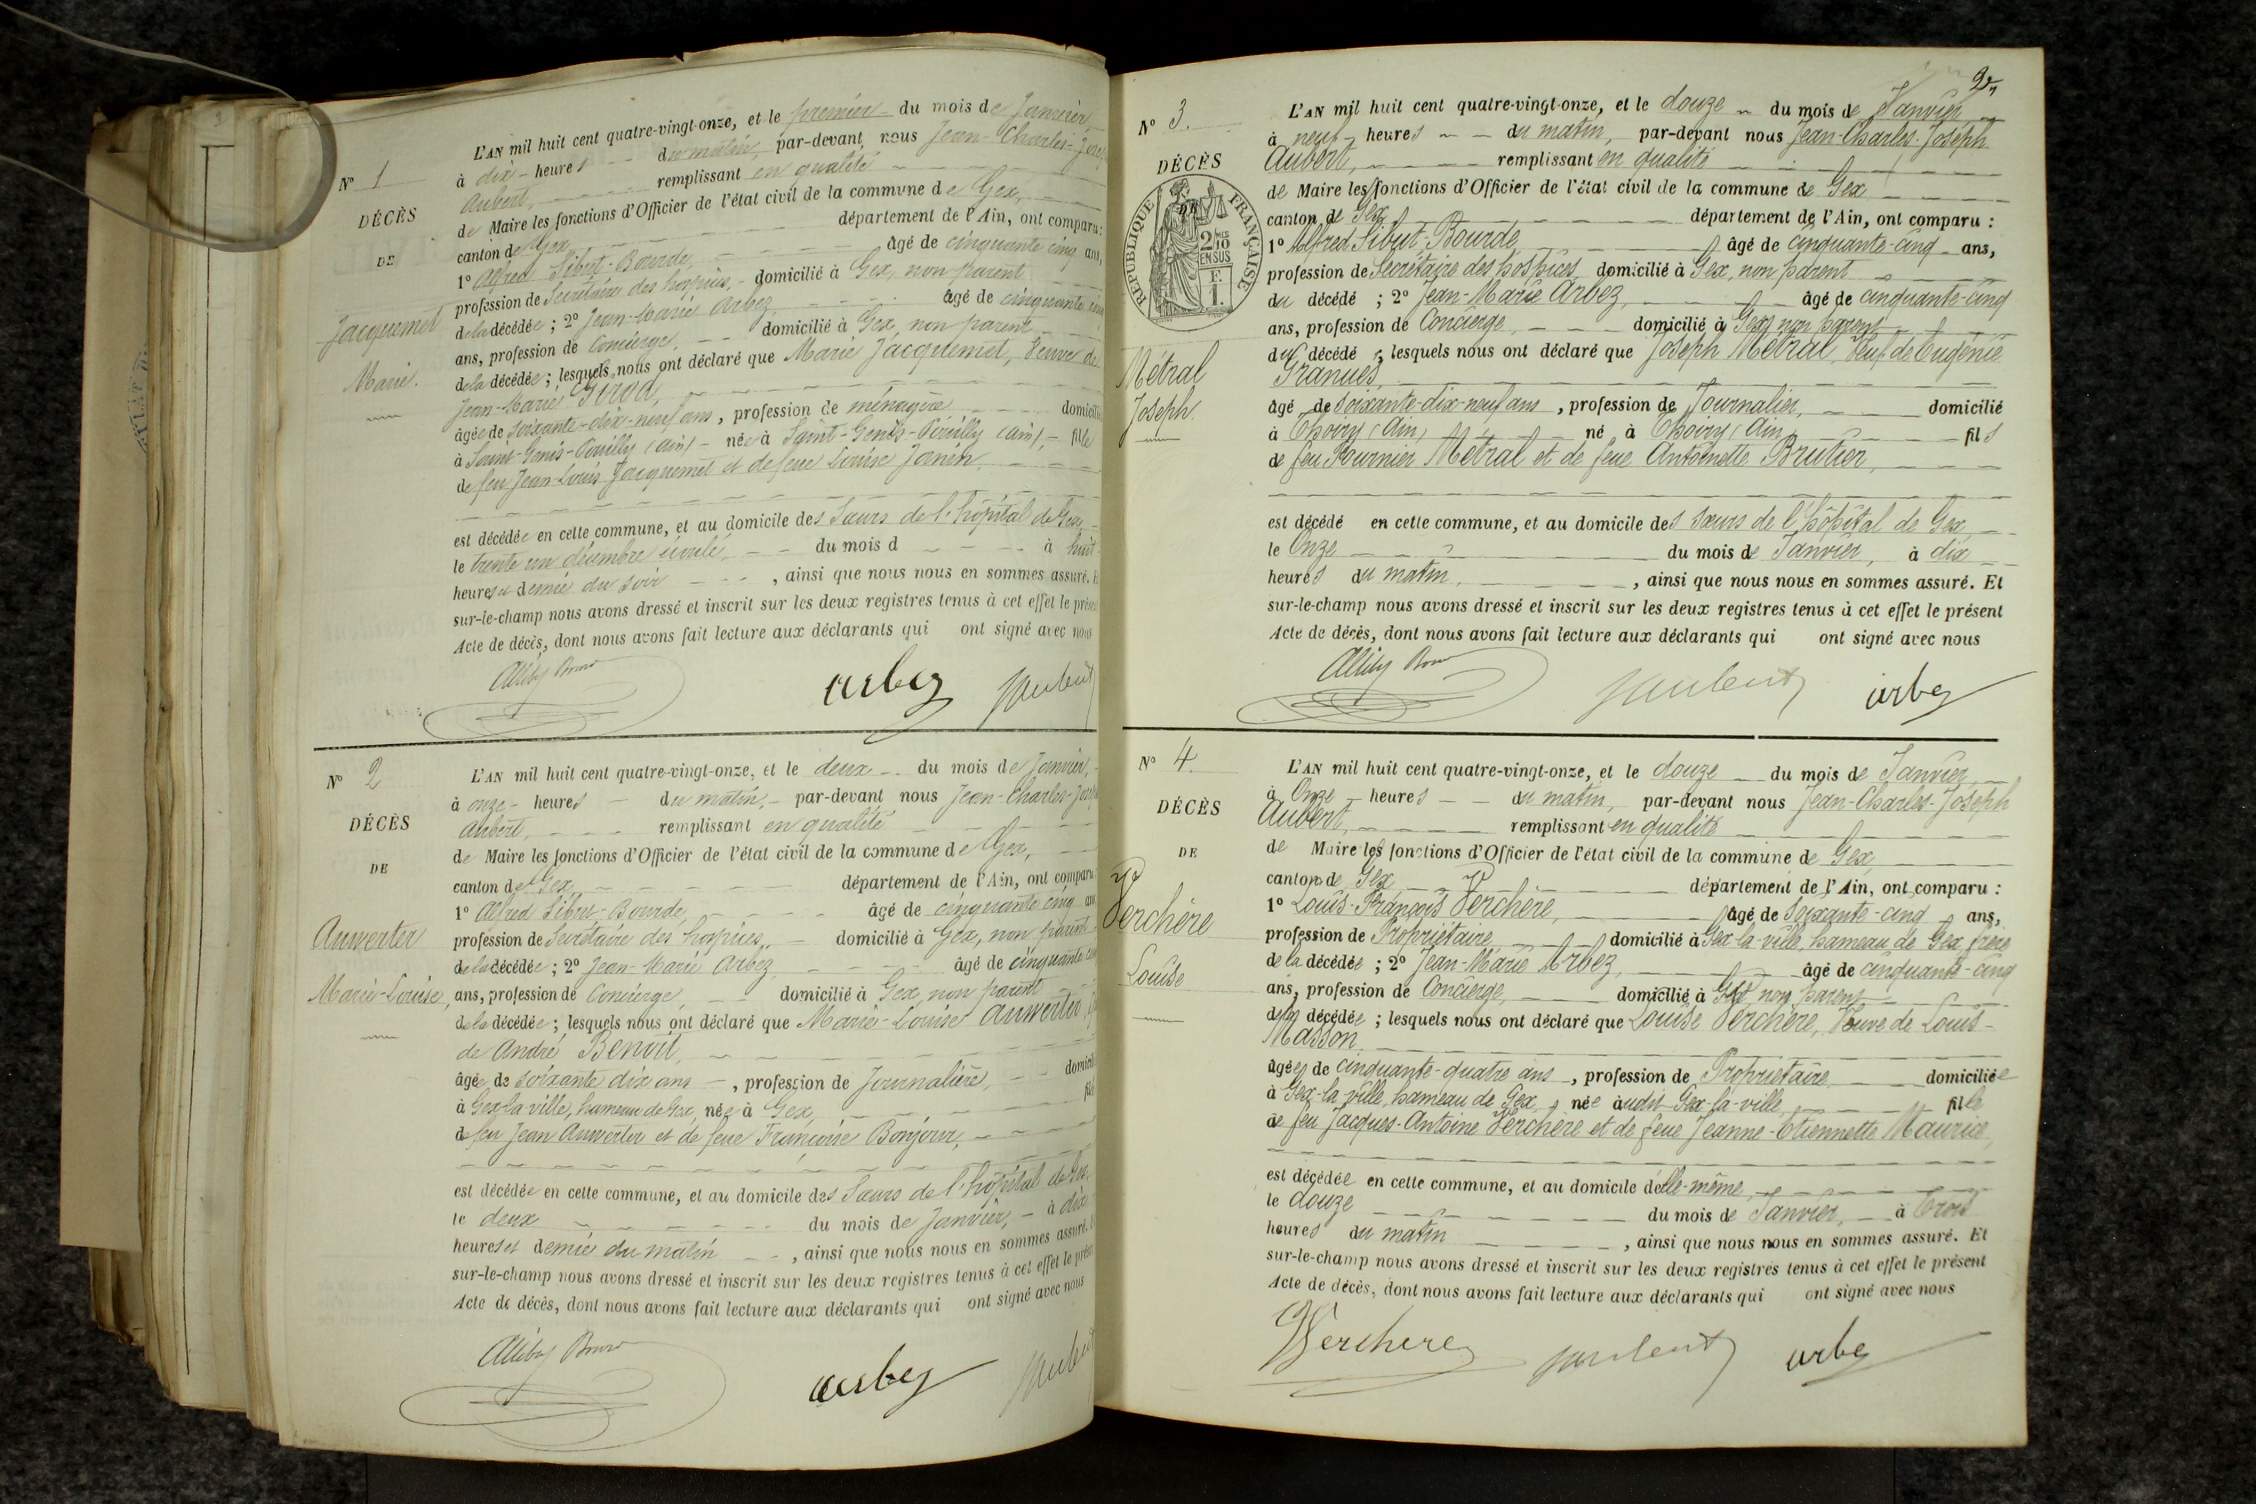 N° 1
DÉCÈS
DE
Jacquemet
Marie.
L'AN mil huit cent quatre-vingt-onze, et le premier du mois de Janvier
à dix - heures du matin, par-devant nous Jean-Charles-Joseph
Aubert, remplissant en qualité
de Maire les fonctions d'Officier de l'état civil de la commune de Gex,
canton de Gex département de l'Ain, ont comparu :
1° Alfred Sibut-Bourde, âgé de cinquante cinq ans,
profession de Secrétaire des hospices, - domicilié à Gex, non parent
de la décédée ; 2° Jean-Marie Arbez, âgé de cinquante cinq
ans, profession de Concierge, domicilié à Gex, non parent
de la décédée ; lesquels nous ont déclaré que Marie Jacquemet, Veuve de
Jean-Marie Girod,
âgée de soixante-dix-neuf ans, profession de ménagère domiciliée
à Saint-Genis-Pouilly (Ain) - née à Saint-Genis-Pouilly (Ain), - fille
de feu Jean-Louis Jacquemet et de feue Louise Janin.
est décédée en cette commune, et au domicile des Sœurs de l'hôpital de Gex,
le trente un décembre écoulé, du mois d à huit
heures et demie du soir , ainsi que nous nous en sommes assuré. Et
sur-le-champ nous avons dressé et inscrit sur les deux registres tenus à cet effet le présent
Acte de décès, dont nous avons fait lecture aux déclarants qui ont signé avec nous
arbez JAubert
N° 2
DÉCÈS
DE
Anwerter
Marie-Louise,
L'AN mil huit cent quatre-vingt-onze, et le deux du mois de Janvier,
à onze - heures du matin, - par-devant nous Jean-Charles-Joseph
Aubert, remplissant en qualité
de Maire les fonctions d'Officier de l'état civil de la commune de Gex,
canton de Gex département de l'Ain, ont comparu
1° Alfred Sibut-Bourde, âgé de cinquante cinq ans
profession de Secrétaire des hospices, - domicilié à Gex, non parent
de la décédée ; 2° Jean-Marie Arbez, âgé de cinquante cinq
ans, profession de Concierge, domicilié à Gex, non parent
de la décédée ; lesquels nous ont déclaré que Marie-Louise Anwerter,
de André Benoit,
âgée de soixante dix ans -, profession de Journalière, domiciliée
à Gex-la ville, hameau de Gex, née à Gex, fille
de feu Jean Anwerter et de feue Françoise Bonjour,
est décédée en cette commune, et au domicile des Sœurs de l'hôpital de Gex,
le deux du mois de Janvier, - à dix
heures et demie du matin , ainsi que nous nous en sommes assuré. Et
sur-le-champ nous avons dressé et inscrit sur les deux registres tenus à cet effet le présent
Acte de décès, dont nous avons fait lecture aux déclarants qui ont signé avec nous
arbez JAubert
2
N° 3.
DÉCÈS
DE
RÉPUBLIQUE FRANÇAISE
2/10
EN SUS
1 F.
Métral
Joseph
L'AN mil huit cent quatre-vingt-onze, et le douze du mois de Janvier
à neuf heures du matin, par-devant nous Jean-Charles-Joseph
Aubert, remplissant en qualité
de Maire les fonctions d'Officier de l'état civil de la commune de Gex
canton de Gex département de l'Ain, ont comparu :
1° Alfred Sibut-Bourde, âgé de cinquante-cinq ans,
profession de Secrétaire des hospices domicilié à Gex, non parent
du décédé ; 2° Jean-Marie Arbez, âgé de cinquante-cinq
ans, profession de Concierge, domicilié à Gex, non parent
du décédé ; lesquels nous ont déclaré que Joseph Métral, Veuf de Eugénie
âgé de soixante-dix-neuf ans, profession de Journalier, domicilié
à Thoiry (Ain) né à Thoiry (Ain) fils
de feu Fournier Métral et de feue Antoinette Brutier,
est décédé en cette commune, et au domicile des sœurs de l'hôpital de Gex
le Onze du mois de Janvier, à dix
heures du matin. , ainsi que nous nous en sommes assuré. Et
sur-le-champ nous avons dressé et inscrit sur les deux registres tenus à cet effet le présent
Acte de décès, dont nous avons fait lecture aux déclarants qui ont signé avec nous
JAubert arbez
N° 4.
DÉCÈS
DE
Verchère
Louise
L'AN mil huit cent quatre-vingt-onze, et le douze du mois de Janvier
à Onze heures du matin, par-devant nous Jean-Charles-Joseph
Aubert, remplissant en qualité
de Maire les fonctions d'Officier de l'état civil de la commune de Gex
canton de Gex département de l'Ain, ont comparu :
1° Louis-François Verchère, âgé de soixante-cinq ans,
profession de Propriétaire domicilié à Gex-la-ville, hameau de Gex, frère
de la décédée ; 2° Jean-Marie Arbez, âgé de cinquante-cinq
ans, profession de Concierge, domicilié à Gex, non parent
de la décédée ; lesquels nous ont déclaré que Louise Verchère, Veuve de Louis-
Masson
âgée de cinquante-quatre ans -, profession de Propriétaire domiciliée
à Gex-la ville, hameau de Gex, née audit Gex-la-ville, fille
de feu Jacques-Antoine Verchère et de feue Jeanne-Etiennette Maurice,
est décédée en cette commune, et au domicile d'elle-même,
le douze du mois de Janvier, à trois
heures du matin , ainsi que nous nous en sommes assuré. Et
sur-le-champ nous avons dressé et inscrit sur les deux registres tenus à cet effet le présent
Acte de décès, dont nous avons fait lecture aux déclarants qui ont signé avec nous
Verchere JAubert arbez